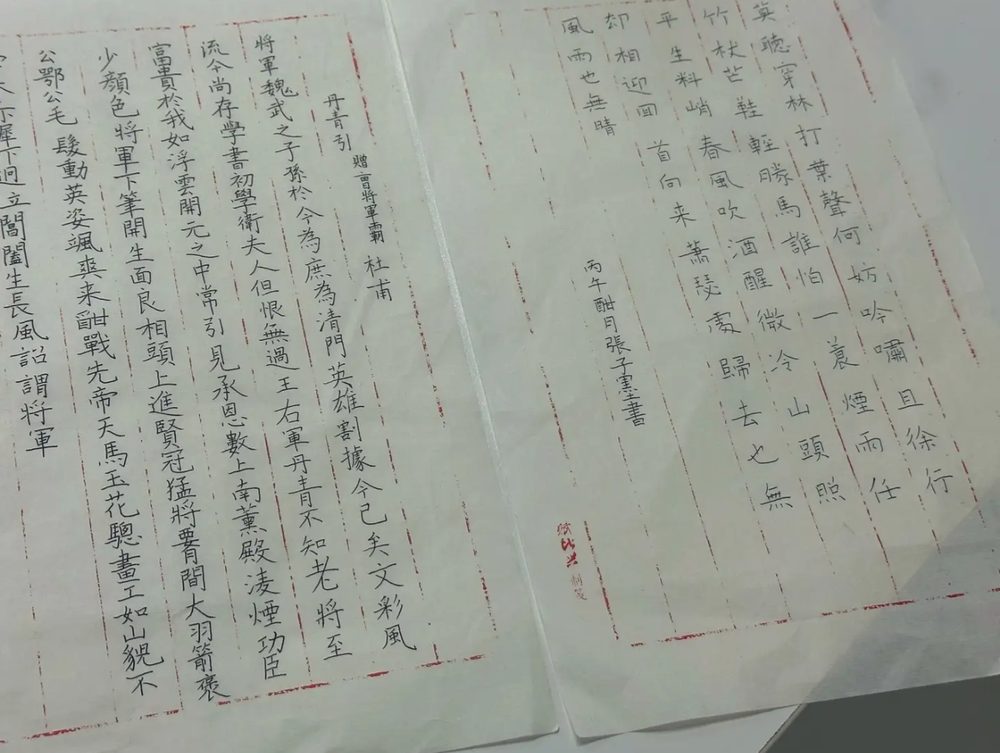 莫聽穿林打葉聲何妨吟嘯且徐行
竹杖芒鞋輕勝馬誰怕一蓑煙雨任
平生料峭春風吹酒醒微冷山頭照
却相迎回首向来蕭瑟處歸去也無
風雨也無晴
丙午酣月張子憲書
制笺
丹青引 贈曹將軍霸 杜甫
將軍魏武之子孫於今為庶為清門英雄割據今已矣文彩風
流今尚存学書初學衛夫人但恨無過王右軍丹青不知老將至
富貴於我如浮雲開元之中常引見承恩數上南薰殿淩煙功臣
少顏色將軍下筆開生面良相頭上進賢冠猛將要間大羽箭褒
公鄂公毛髮動英姿颯爽来酣戰先帝天馬玉花驄畫工如山貌不
赤墀下迥立閶闔生長風詔謂将軍